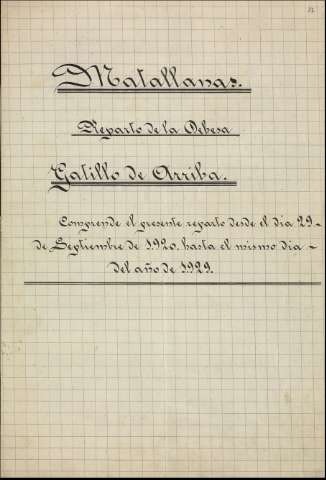 Matallanas.
Reparto de la Dehesa
Gatillo de Arriba.
Comprende el presente reparto desde el dia 29-
de Septiembre de 1.920. hasta el mismo dia -
del año de 1.929.